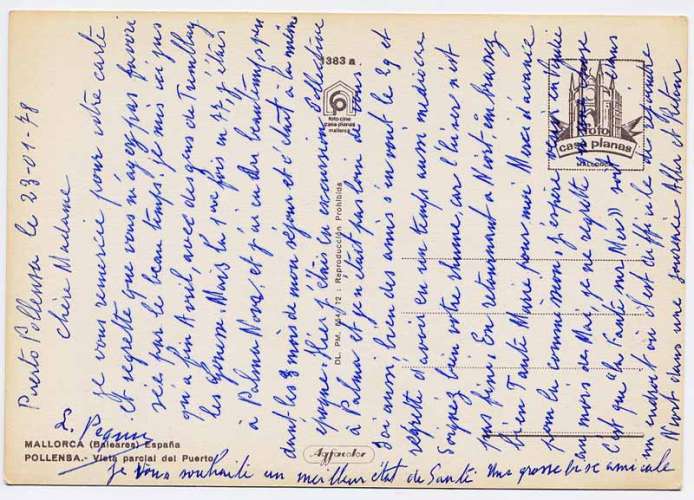 Puerto Pollensa le 23-01-78
Chère Madame
Je vous remercie pour votre carte
et regrette que vous n'ayez pas favori
sées par le beau temps. Je mis ici jus
qu'à fin Avril, avec des gens de Tremblay
les Gonesse. Mais la 1ere fois en 77, j'étais
à Palma Nova, et j'ai eu du beau temps, pen
dant les 3 mois de mon séjour et c'était à la même
époque. Hier j'étais en excursion collective
à Palma et je n'étais pas loin de vous
Ici aussi, bien des amis s'en vont le 29 et
regrette d'avoir eu un temps aussi médiocre
Soignez bien votre rhume, car l'hiver n'est
pas fini. En retournant à Niort, embrassez
bien Tante Marie pour moi. Merci d'avance
pour la commission, j'espère
au mois de Mai, je ne regrette
C'est que "la Santé sur Mer" soit dans
un endroit où il est difficile de se rendre
Niort dans une journée Aller et Retour
Je vous souhaite un meilleur état de Santé. Une grosse bise amicale
MALLORCA (Baleares) España
POLLENSA.- Vista parcial del Puerto
Agfacolor
1383 a
foto cine
casa planas
mallorca
DL. PM. 72 : Reproducción Prohibida
foto
casa planas
MALLORCA